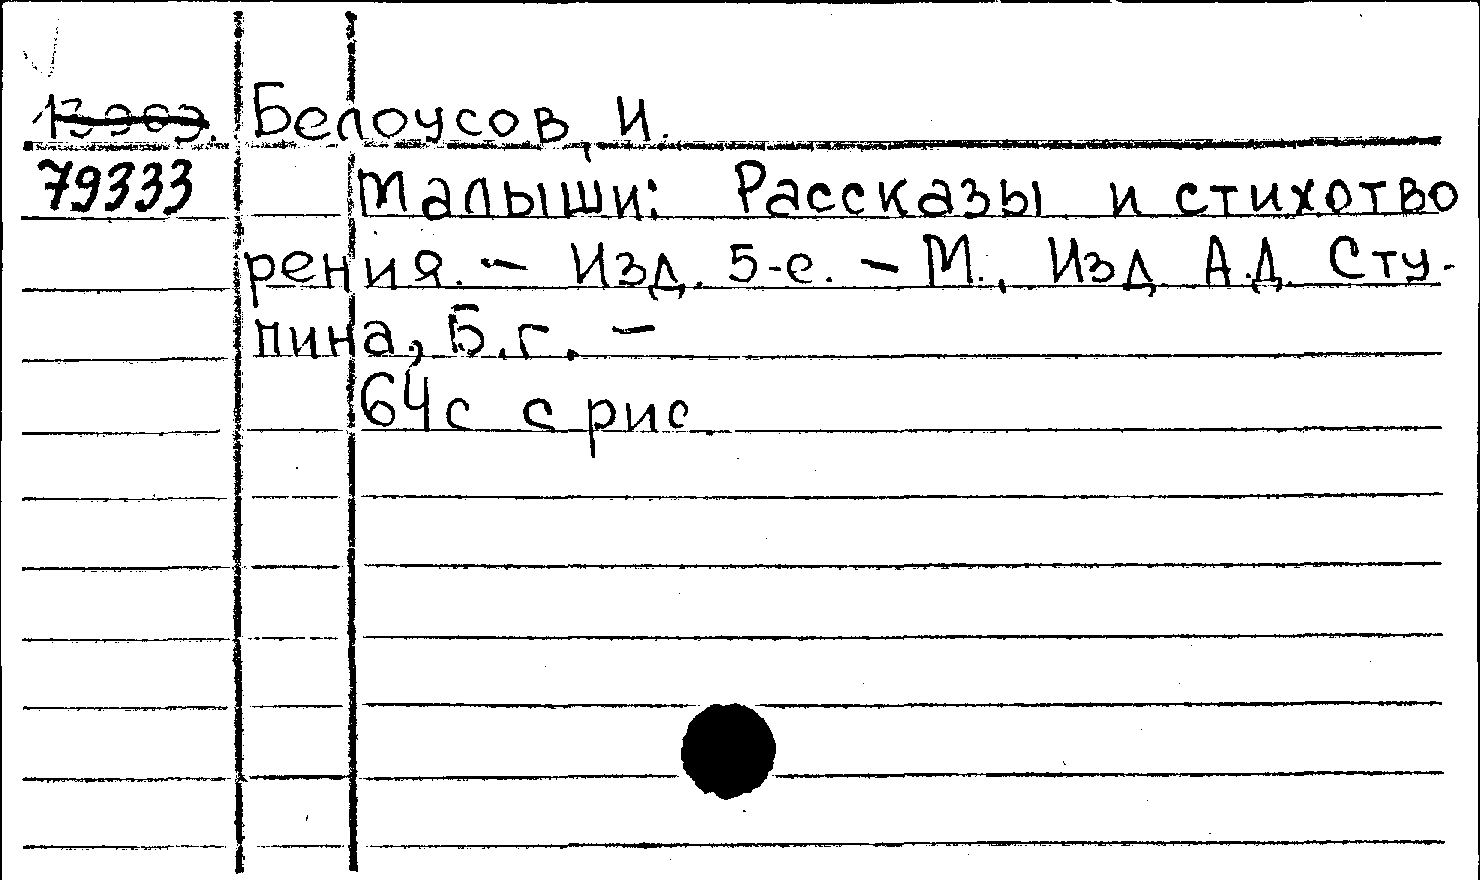 Белоусов, И.
79333 Малыши: Рассказы и стихотво
рения. – Изд. 5-е. – М., Изд. А.Д. Сту-
пина, Б.г. –
64с с рис.